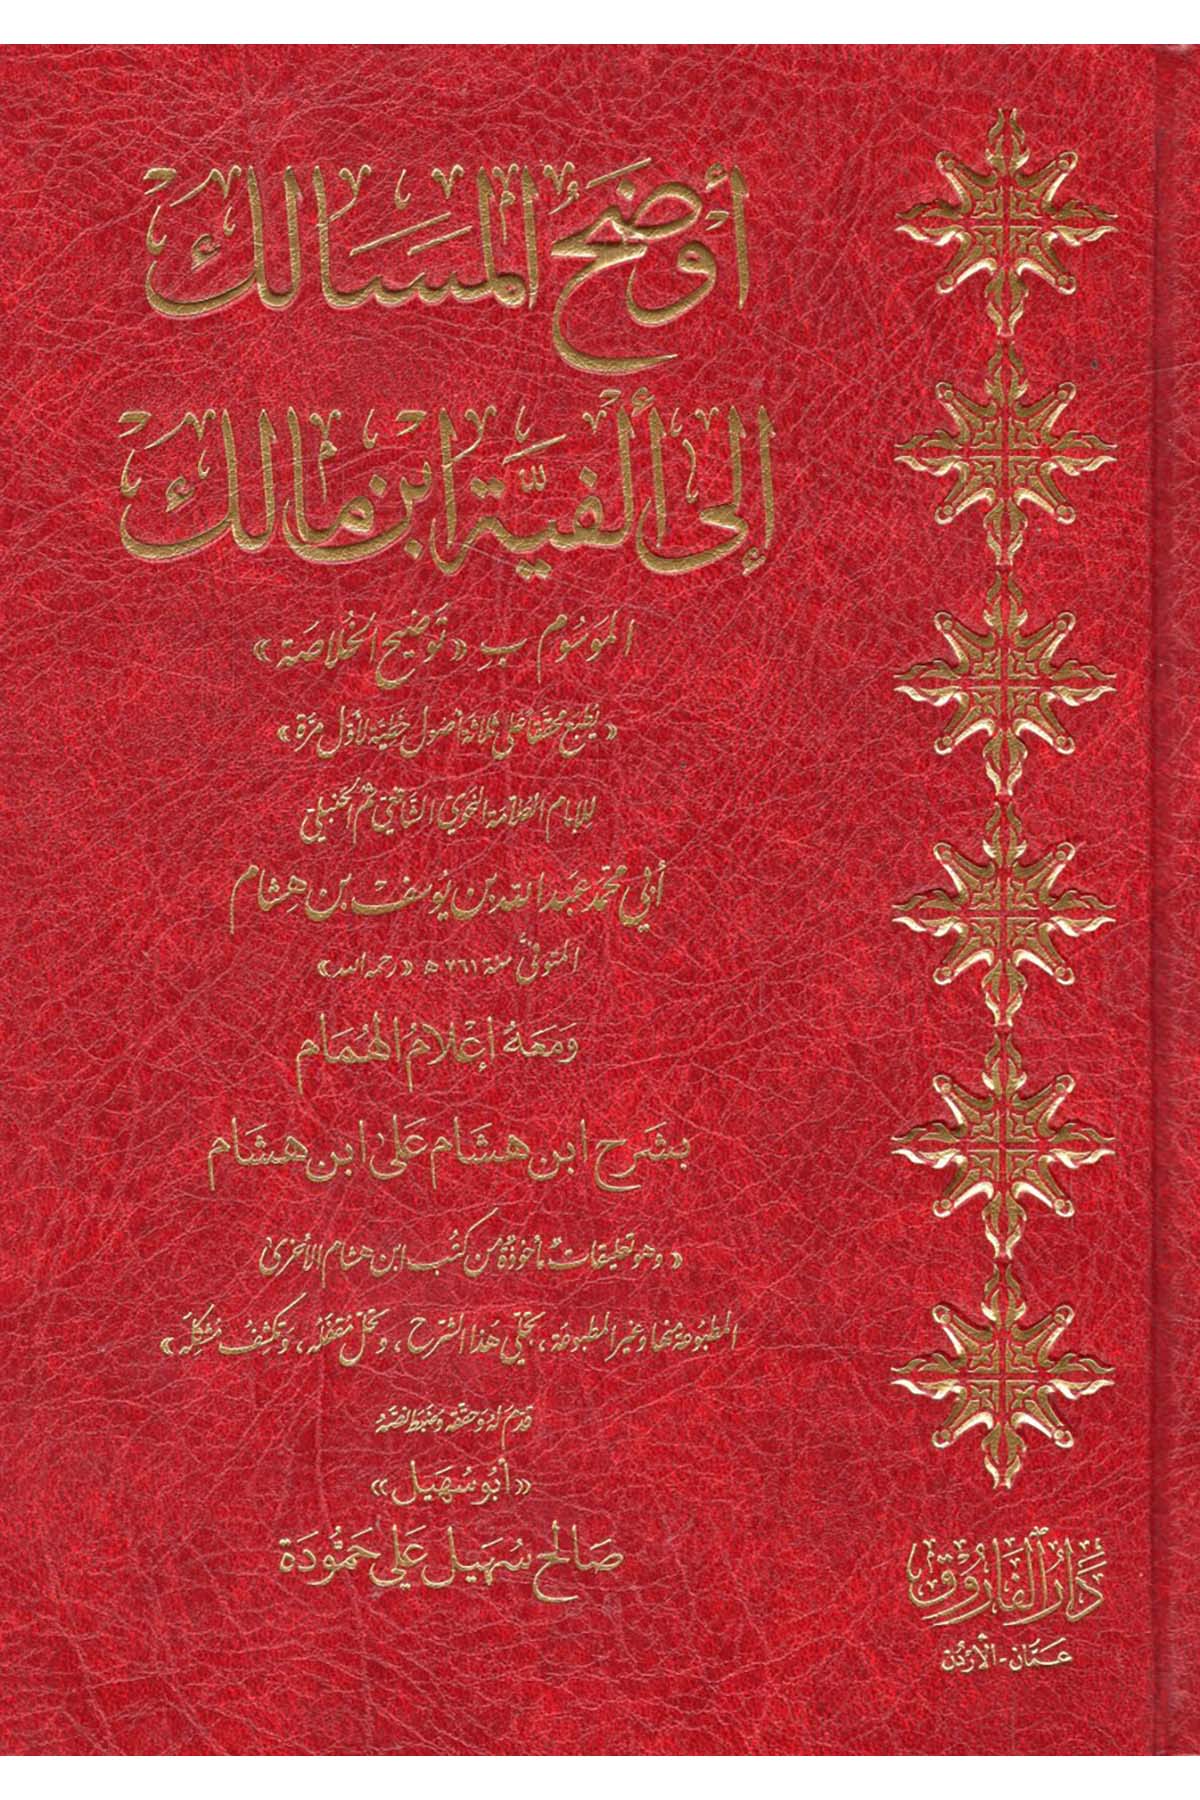 أوضح المسالك
إلى ألفية ابن مالك
الموسوم بـ «توضيح الخلاصة»
«يطبع محققا على ثلاثة أصول خطية لأول مرة»
للإمام العلامة النحوي الشافعي ثم الحنبلي
أبي محمد عبد الله بن يوسف بن هشام
المتوفى سنة ٧٦١ هـ «رحمه الله»
ومعه إعلام الهمام
بشرح ابن هشام على ابن هشام
«وهو تعليقات مأخوذة من كتب ابن هشام الأخرى
المطبوعة منها وغير المطبوعة، تجلي هذا الشرح، وتحل مقفله، وتكشف مشكله»
قدم له وحققه وضبط نصه
«أبو سهيل»
صالح سهيل علي حمودة
دار الفاروق
عمان - الأردن